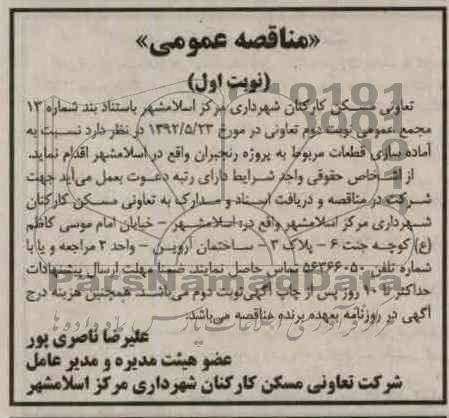 «مناقصه عمومی»
(نوبت اول)
تعاونی مسکن کارکنان شهرداری مرکز اسلامشهر باستناد بند شماره ۱۳
مجمع عمومی نوبت دوم تعاونی در مورخ ۱۳۹۲/۵/۲۳ در نظر دارد نسبت به
آماده سازی قطعات مربوط به پروژه رنجبران واقع در اسلامشهر اقدام نماید.
از اشخاص حقوقی واجد شرایط دارای رتبه دعوت بعمل می‌آید جهت
شرکت در مناقصه و دریافت اسناد و مدارک به تعاونی مسکن کارکنان
شهرداری مرکز اسلامشهر واقع در: اسلامشهر - خیابان امام موسی کاظم
(ع) کوچه جنت ۶ - پلاک ۳ - ساختمان آرویس - واحد ۲ مراجعه و یا با
شماره تلفن ۵۶۳۶۶۰۵۰ تماس حاصل نمایند. ضمنا مهلت ارسال پیشنهادات
حداکثر تا ۱۰ روز پس از چاپ آگهی نوبت دوم می‌باشد. همچنین هزینه درج
آگهی در روزنامه بعهده برنده مناقصه می‌باشد.
علیرضا ناصری پور
عضو هیئت مدیره و مدیر عامل
شرکت تعاونی مسکن کارکنان شهرداری مرکز اسلامشهر
ParsNamadData